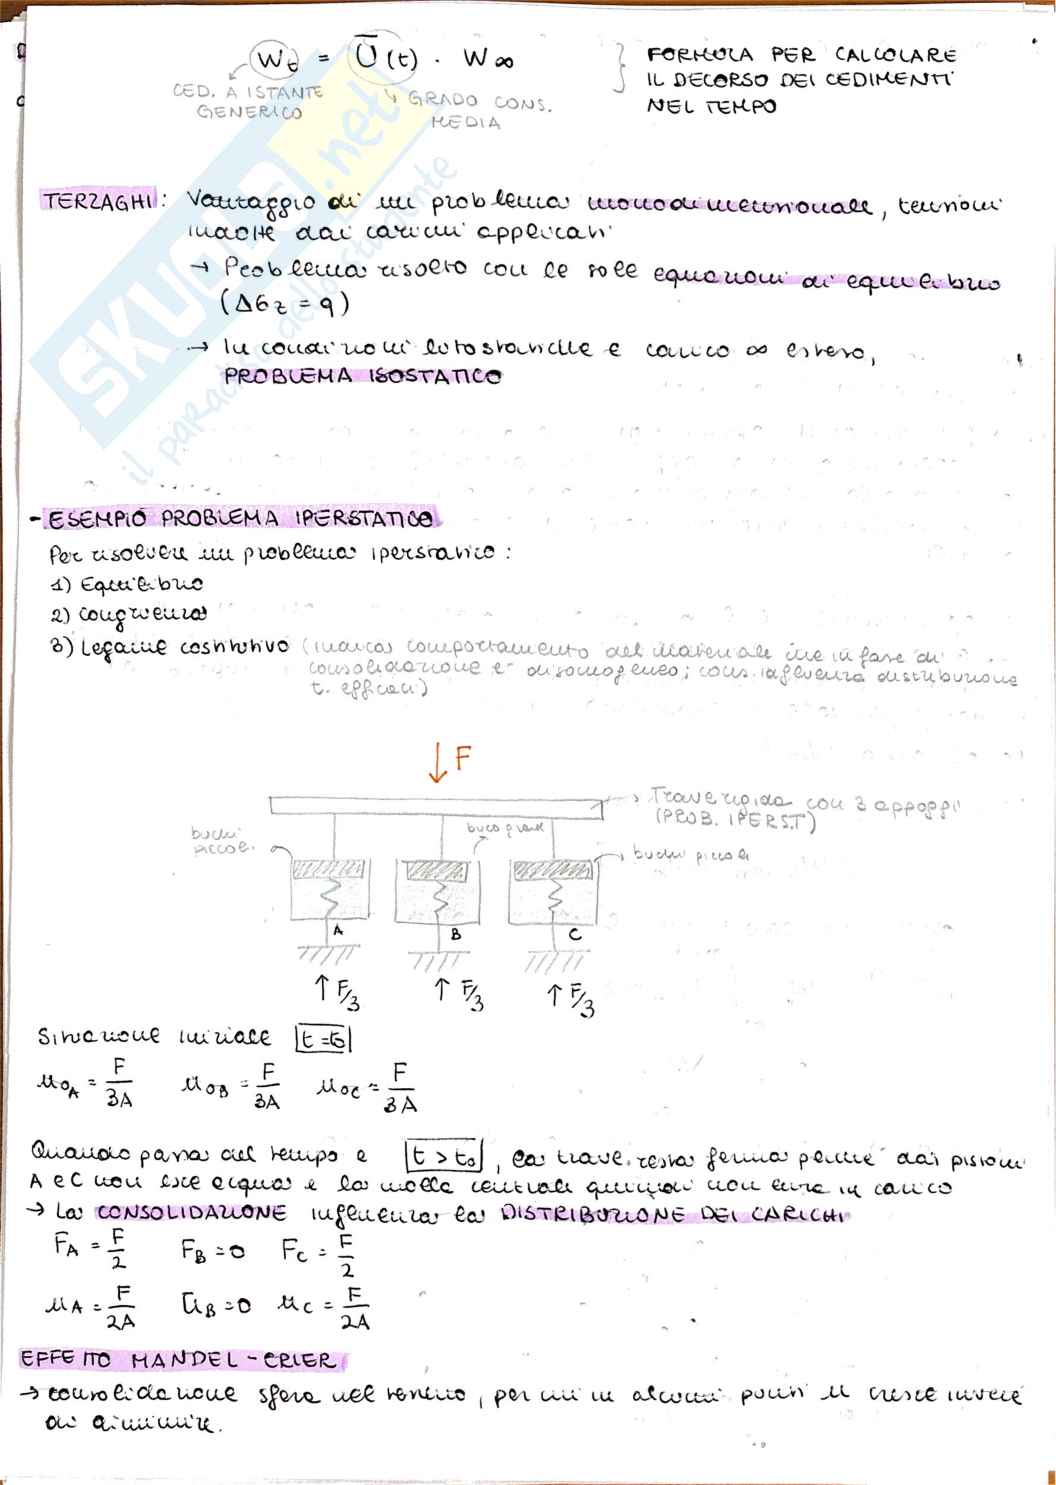 Wt = Ū(t) · W∞
FORMULA PER CALCOLARE
IL DECORSO DEI CEDIMENTI
NEL TEMPO
CED. A ISTANTE
GENERICO
↳ GRADO CONS.
MEDIA
SKUOLA.net
il paradiso dello studente
TERZAGHI: Vantaggio di un problema monodimensionale, tensioni
indotte dai carichi applicati
→ Problema risolto con le sole equazioni di equilibrio
(Δσz = q)
→ In condizioni litostatiche e carico ∞ esteso,
PROBLEMA ISOSTATICO
- ESEMPIO PROBLEMA IPERSTATICO
Per risolvere un problema iperstatico:
1) Equilibrio
2) Congruenza
3) Legame costitutivo (indica comportamento del materiale che in fase di
consolidazione è disomogeneo; cons. influenza distribuzione
t. efficaci)
F
→ Trave rigida con 3 appoggi
(PROB. IPERST)
buchi
piccoli
buco grande
buchi piccoli
A
B
C
↑ F/3
↑ F/3
↑ F/3
Situazione iniziale t=t0
u0A = F/3A u0B = F/3A u0C = F/3A
Quando passa del tempo e t > t0, la trave resta ferma perché dai pistoni
A e C non esce acqua e la molla centrale quindi non entra in carico
→ La CONSOLIDAZIONE influenza la DISTRIBUZIONE DEI CARICHI
FA = F/2 FB = 0 FC = F/2
uA = F/2A uB = 0 uC = F/2A
EFFETTO MANDEL-CRIER
→ consolidazione sfera nel terreno, per cui in alcuni punti u cresce invece
di diminuire.